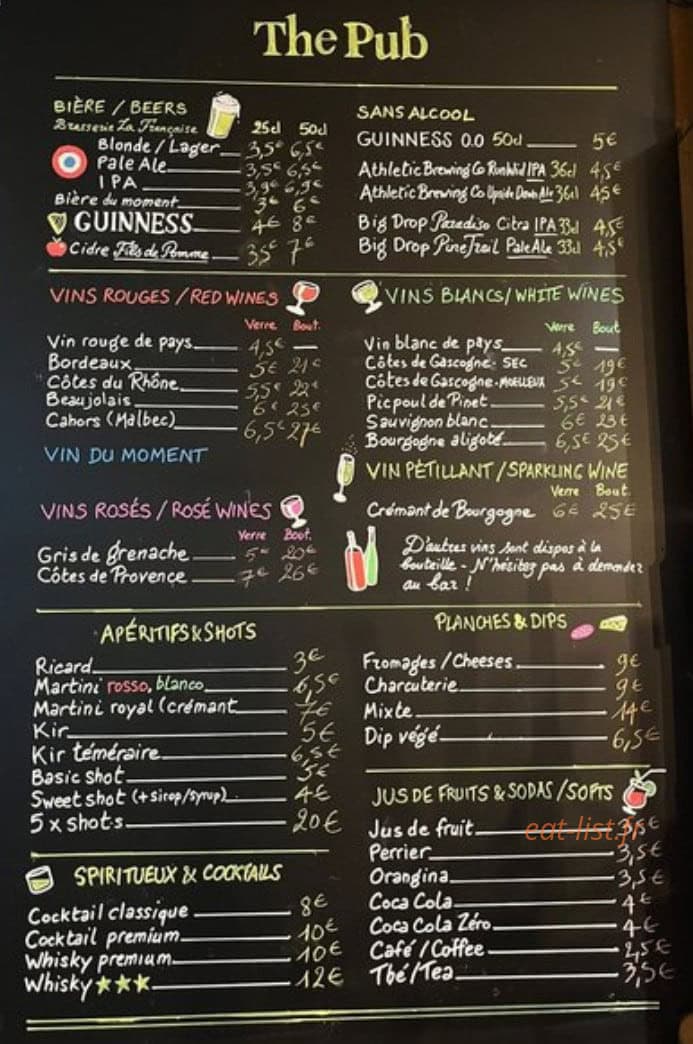 The Pub
BIÈRE / BEERS
Brasserie La Française
25cl 50cl
Blonde / Lager 3,5€ 6,5€
Pale Ale 3,5€ 6,5€
IPA 3,9€ 6,9€
Bière du moment 3€ 6€
GUINNESS 4€ 8€
Cidre Fils de Pomme 3,5€ 7€
SANS ALCOOL
GUINNESS 0.0 50cl 5€
Athletic Brewing Co Run Wild IPA 36cl 4,5€
Athletic Brewing Co Upside Dawn Ale 36cl 4,5€
Big Drop Paradiso Citra IPA 33cl 4,5€
Big Drop Pine Trail Pale Ale 33cl 4,5€
VINS ROUGES / RED WINES
Verre Bout.
Vin rouge de pays 4,5€ —
Bordeaux 5€ 21€
Côtes du Rhône 5,5€ 22€
Beaujolais 6€ 25€
Cahors (Malbec) 6,5€ 27€
VIN DU MOMENT
VINS ROSÉS / ROSÉ WINES
Verre Bout.
Gris de Grenache 5€ 20€
Côtes de Provence 7€ 26€
VINS BLANCS / WHITE WINES
Verre Bout
Vin blanc de pays 4,5€ —
Côtes de Gascogne - SEC 5€ 19€
Côtes de Gascogne - MOELLEUX 5€ 19€
Picpoul de Pinet 5,5€ 21€
Sauvignon blanc 6€ 23€
Bourgogne aligoté 6,5€ 25€
VIN PÉTILLANT / SPARKLING WINE
Verre Bout.
Crémant de Bourgogne 6€ 25€
D'autres vins sont dispos à la
bouteille - N'hésitez pas à demander
au bar !
APÉRITIFS & SHOTS
Ricard 3€
Martini rosso, blanco 6,5€
Martini royal (crémant 7€
Kir 5€
Kir téméraire 6,5€
Basic shot 3€
Sweet shot (+ sirop/syrup) 4€
5 x shots 20€
SPIRITUEUX & COCKTAILS
Cocktail classique 8€
Cocktail premium 10€
Whisky premium 10€
Whisky ★★★ 12€
PLANCHES & DIPS
Fromages / Cheeses 9€
Charcuterie 9€
Mixte 14€
Dip végé 6,5€
JUS DE FRUITS & SODAS / SOFTS
Jus de fruit €
eat-list.fr
Perrier 3,5€
Orangina 3,5€
Coca Cola 4€
Coca Cola Zéro 4€
Café / Coffee 2,5€
Thé / Tea 3,5€